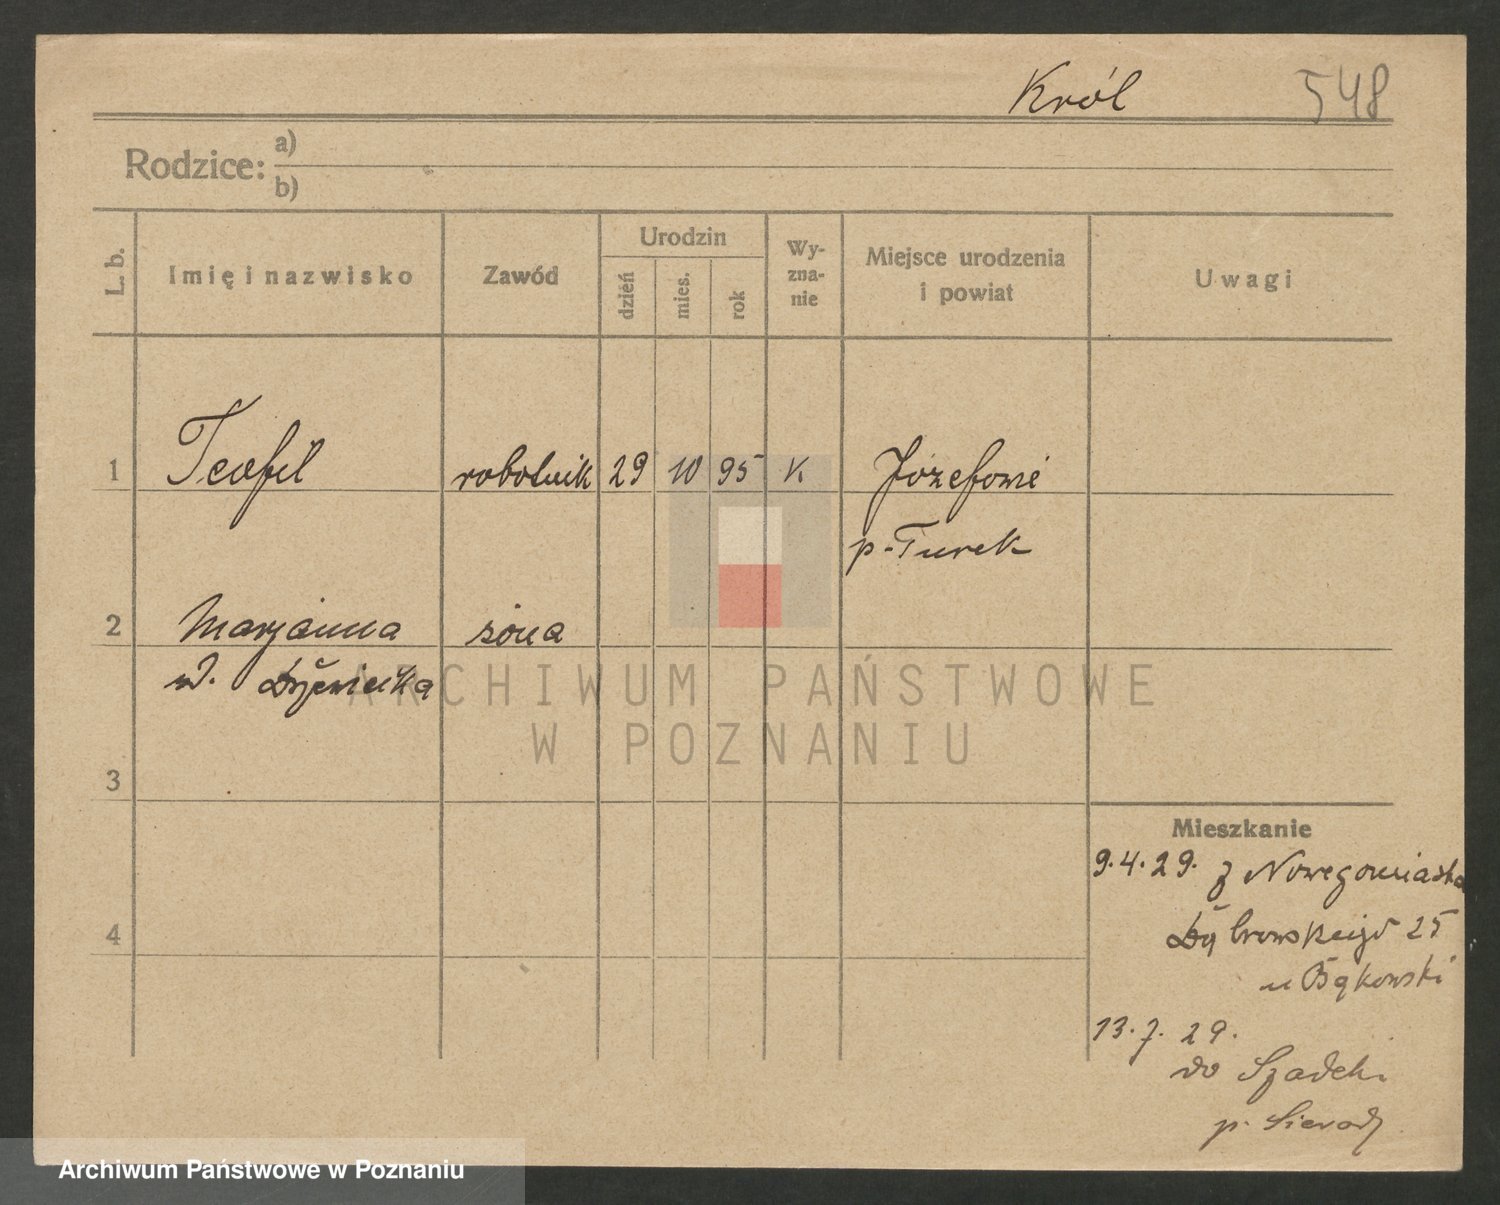 Król 548
Rodzice: a)
b)
L. b. Imię i nazwisko Zawód Urodzin Wy-zna-nie Miejsce urodzenia i powiat Uwagi
dzień mies. rok
1 Teofil robotnik 29 10 95 K Józefowie
p. Turek
2 Marjanna żona
3
4
Mieszkanie
9.4.29. z Nowegomiasta
Dąbrowskiego 25
u Bąkowski
13.7.29.
do Szadek
p. Sieradz
ARCHIWUM PAŃSTWOWE
W POZNANIU
Archiwum Państwowe w Poznaniu